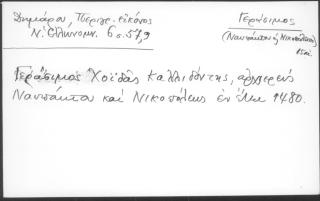 Δημάρου, Περιγρ. εἰκόνος
Ν. Ἑλληνομν. 6 σ. 579
Γεράσιμος
(Ναυπάκτου ἢ Νικοπόλεως)
15 αἰ.
Γεράσιμος Χοϊδᾶς Καλλιδόντης, ἀρχιερεὺς
Ναυπάκτου καὶ Νικοπόλεως ἐν ἔτει 1480.